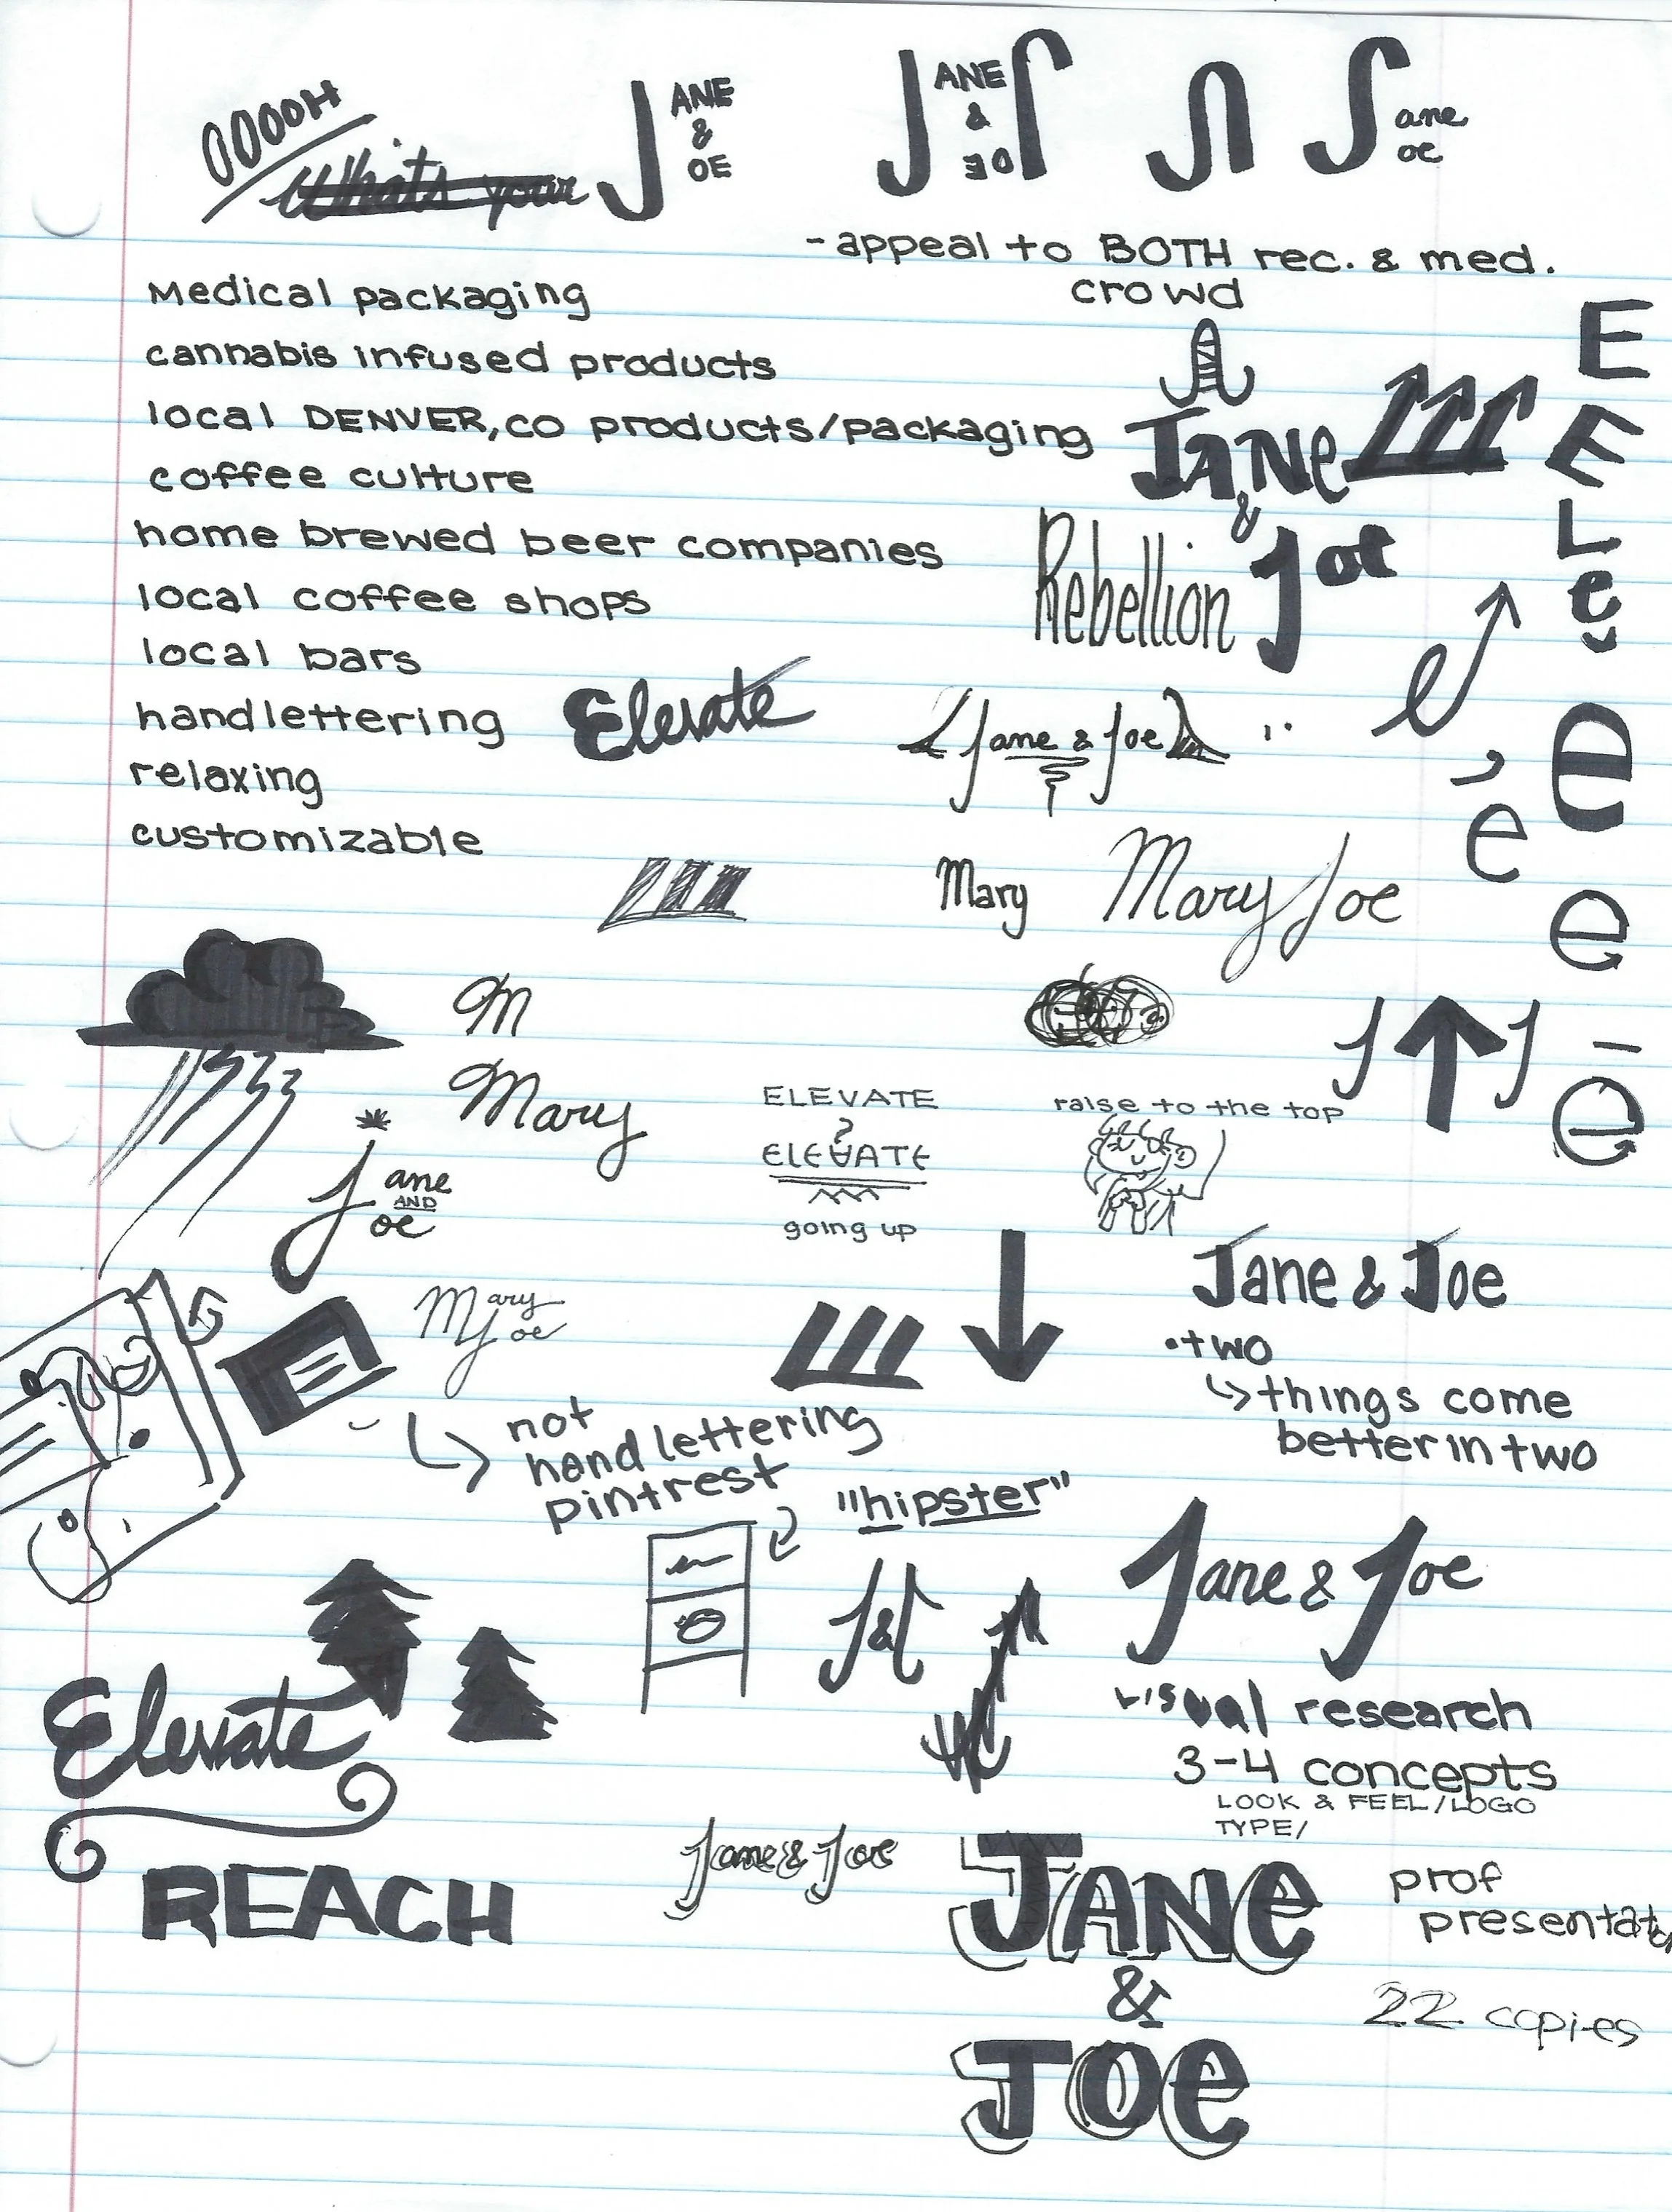 OOOOH
Whats your
J ANE
&
OE
J ANE
&
OE
J
J ane
oe
- appeal to BOTH rec. & med.
crowd
Medical packaging
cannabis infused products
local DENVER, CO products/packaging
coffee culture
home brewed beer companies
local coffee shops
local bars
handlettering
relaxing
customizable
Elevate
JANe
&
Joe
Rebellion
Jane & Joe
Mary
Mary Joe
E
E
L
e
e
e
e
e
ē
J J
M
Mary
J ane
AND
oe
ELEVATE
ELEVATE
going up
raise to the top
Mary
Joe
Jane & Joe
• two
things come
better in two
not
hand lettering
pintrest
"hipster"
J&J
Jane & Joe
visual research
3-4 concepts
LOOK & FEEL/LOGO
TYPE/
Elevate
REACH
Jane & Joe
JANe
&
JOe
prof
presentat
22 copies